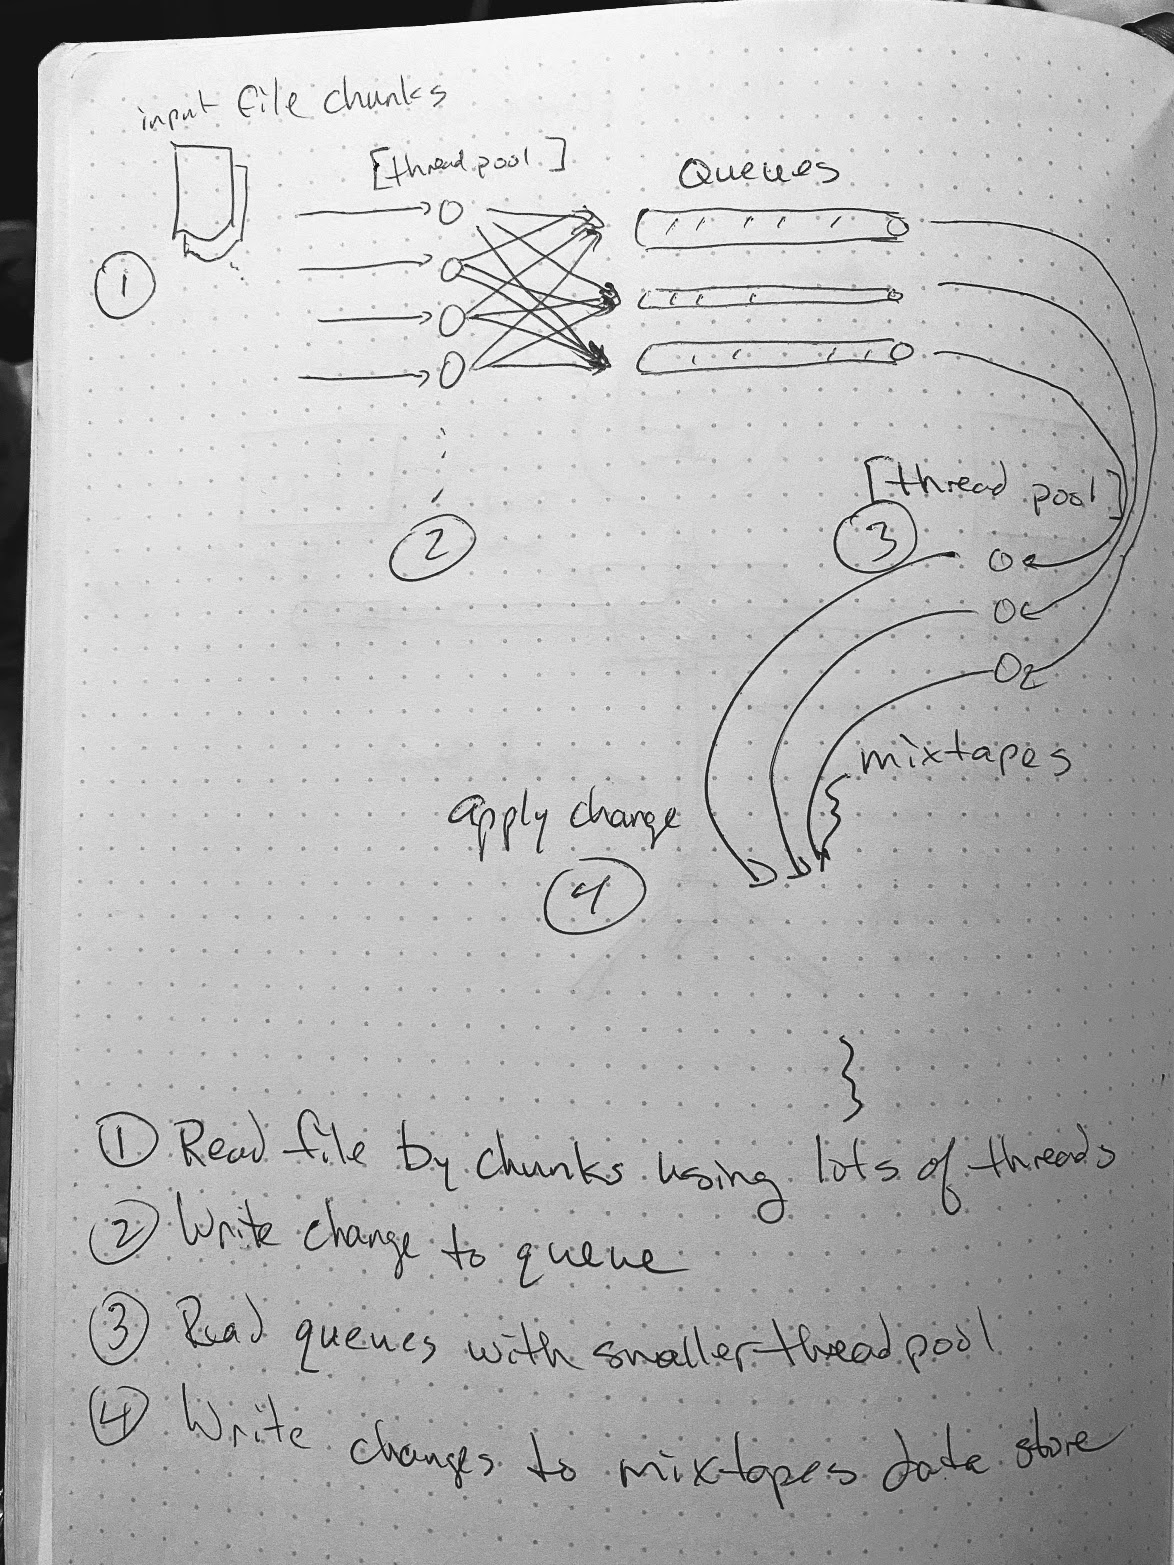 input file chunks
[thread pool]
Queues
1
2
[thread pool]
3
mixtapes
apply change
4
1 Read file by chunks using lots of threads
2 Write change to queue
3 Read queues with smaller thread pool
4 Write changes to mixtapes data store